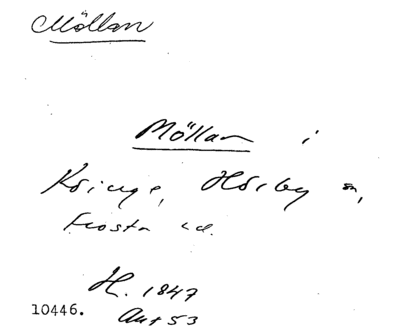 Möllan
Möllan i
Kringe, Hörby sn,
Frosta hd.
H. 1847
10446. Ant 53